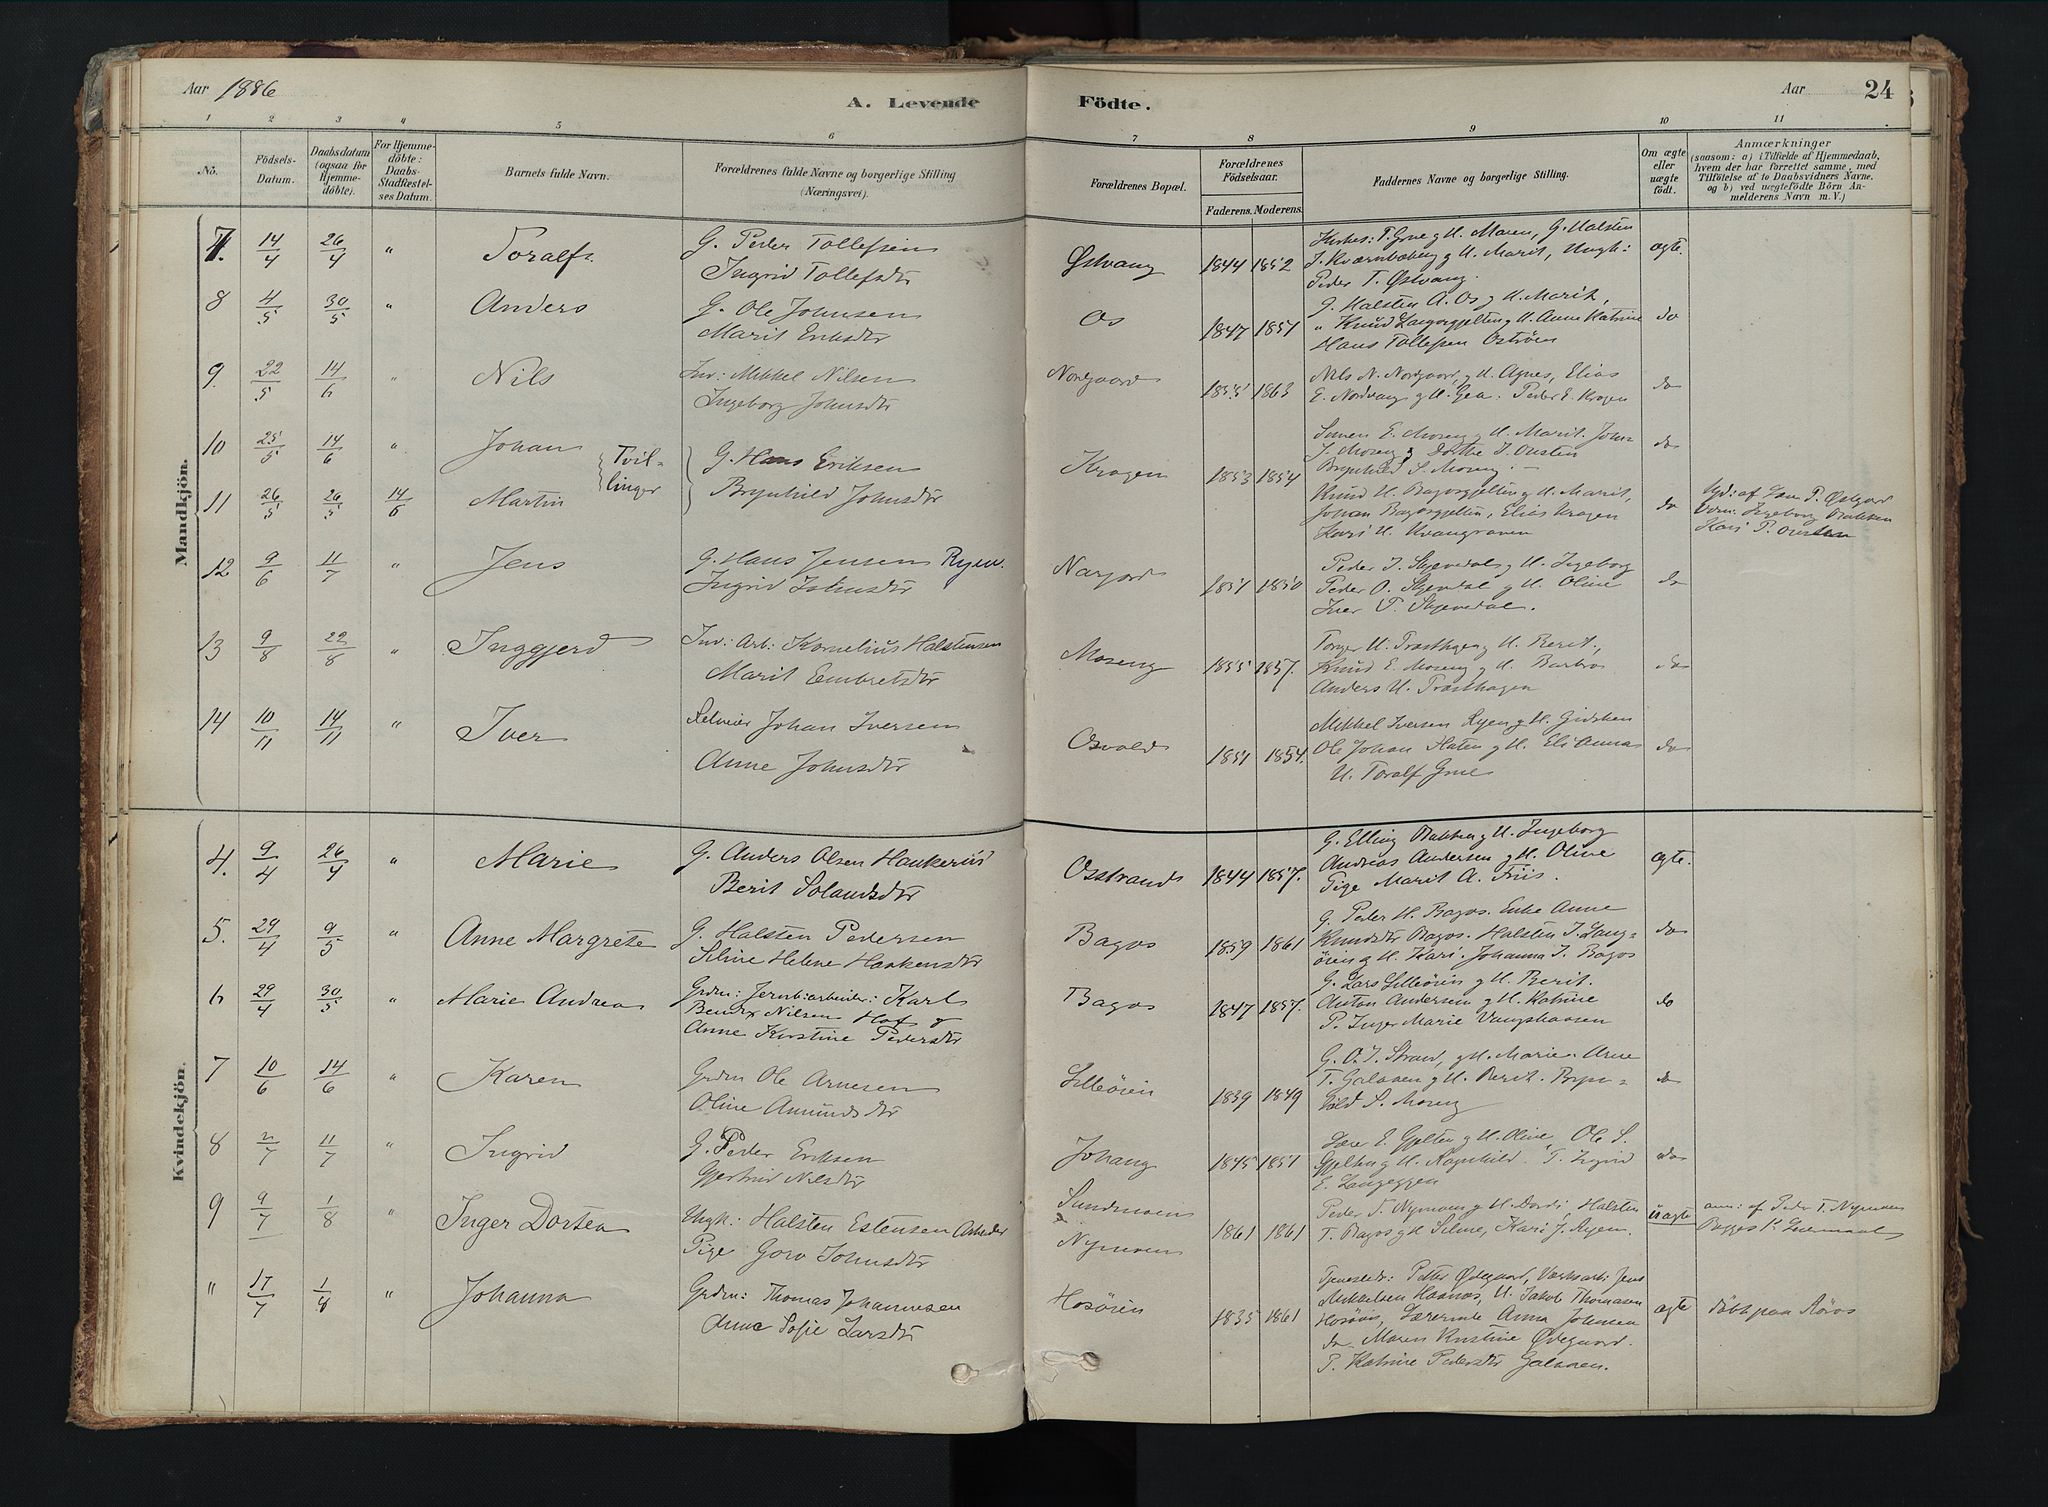 Aar 1886
A. Levende Födte.
Aar 24
1 2 3 4 5 6 7 8 9 10 11
No. Födsels-Datum. Daabsdatum (ogsaa for Hjemmedöbte). For Hjemmedöbte: Daabs-Stadfæstelses Datum. Barnets fulde Navn. Forældrenes fulde Navne og borgerlige Stilling (Næringsvei). Forældrenes Bopæl. Forældrenes Födselsaar. Faderens. Moderens. Faddernes Navne og borgerlige Stilling. Om ægte eller uægte födt. Anmærkninger (saasom: a) i Tilfælde af Hjemmedaab, hvem der har forrettet samme, med Tilföielse af to Daabsvidners Navne, og b) ved uægtefödte Börn Anmelderens Navn m. V.)
Mandkjön.
7. 14/4 26/4 " Toralf. G. Peder Tollefsen
Ingrid Tollefsdtr Østvang 1844 1852 M. Maren, G. Halsten
g H. Marit, Ungk:
Peder T. Østvang. ægte.
8 4/5 30/5 " Anders G. Ole Johnsen
Marit Eriksdtr Os 1847 1851 G. Halsten A. Os g H. Marit,
" Knud g H. Anne Katrine
Hans Tollefsen Öströen do
9. 22/5 14/6 " Nils Inv: Mikkel Nilsen
Ingeborg Johnsdtr Norgaard 1855 1863 Nils N. Norgaard, g H. Agnes, Elias
E. Nordvang g H. Gea. Peder E. Krogen do
10 25/5 14/6 " Johan Tvillinger G. Hans Eriksen
Brynhild Johnsdtr Krogen 1853 1854 Simen E. Moseng g H. Marit. John
J. Moseng, Dorthe J. Ousten
Brynhild S. Moseng. do
11 26/5 26/5 14/6 Martin Knud H. g H. Marit,
Johan, Elias Krogen
Kari H. Kvangraven do af P. Østgard
Ingeborg Bakken
Kari P. Ousten
12 9/6 11/7 " Jens G. Hans Jensen Ryen.
Ingrid Johnsdtr Narjord 1851 1850 Peder J. Skjevedal g H. Ingeborg
Peder O. Skjevdal g H. Oline
Iver P. Skjevedal. do
13 9/8 22/8 " Inggjerd Inv: Arb: Kornelius Halstensen
Marit Embretsdtr Moseng 1855 1857. H. g H. Berit,
Knud E. Moseng g H. Barbro
Anders H. Trøsthagen do
14 10/11 14/11 " Iver Johan Iversen
Anne Johnsdtr Osvold 1851 1854. Mikkel Iversen Ryen g H.
Ole Johan g H. Eli Anna
U. Toralf do
Kvindekjön.
4. 9/4 26/4 " Marie G. Anders Olsen
Berit Osstrand 1844 1857. G. Elling Bakken g H. Ingeborg
Andreas Andersen g H. Oline
Pige Marit A. Friis. ægte.
5. 29/4 9/5 " Anne Margrete G. Halsten Pedersen
Siline Helene Haakensdtr Bagos 1859 1861 G. Peder H. Bagos. Enke Anne
Knudsdtr Bagos. Halsten J. Lang-
öien g H. Kari. Johanna J. Bagos do
6 29/4 30/5 " Marie Andrea Grdm: Jernb:arbeider: Karl
Nilsen Hof g
Anne Kirstine Pedersdtr Bagos 1847 1857. G. Lars Lilleöien g H. Berit.
Anton Andersen g H. Katrine
P. Inger Marie Vangshaasen do
7 10/6 14/6 " Karen Grdm Ole Arnesen
Oline Amundsdtr Lilleöien 1839 1849 G. O. J. Strand, g H. Marie. Arne
T. Galaaen g H. Berit. Bryn-
hild S. Moseng do
8 2/7 11/7 " Ingrid G. Peder Eriksen
Gjertrud Nilsdtr Johang 1845 1851 E. Gjelten g H. Oline, Ole S.
Gjelten g H. Ragnhild. T. Ingrid
E. Langeggen do
9 9/7 1/8 " Inger Dortea Ungk: Halsten Estensen
Pige Goro Johnsdtr Sundmoen
Nymoen 1861 1861 Peder T. Nymoen g H. Dordi, Halsten
T. Bagos g H. Siline, Kari J. Ryen. uægte anm: af Peder T. Nymoen
" 17/7 1/8 " Johanna Grdm: Thomas Johannesen
Anne Sofie Larsdtr Hosöien 1835 1861 Tjenestedr: Petter Ødegaard, Værksarb: Jens
Mikkelsen, U. Jakob Thomasen
Hosöien, Lærerinde Anna Johnsen
do Maren Kristine Ødegaard.
P. Katrine Pedersdtr Galaaen. ægte döbt paa Röros